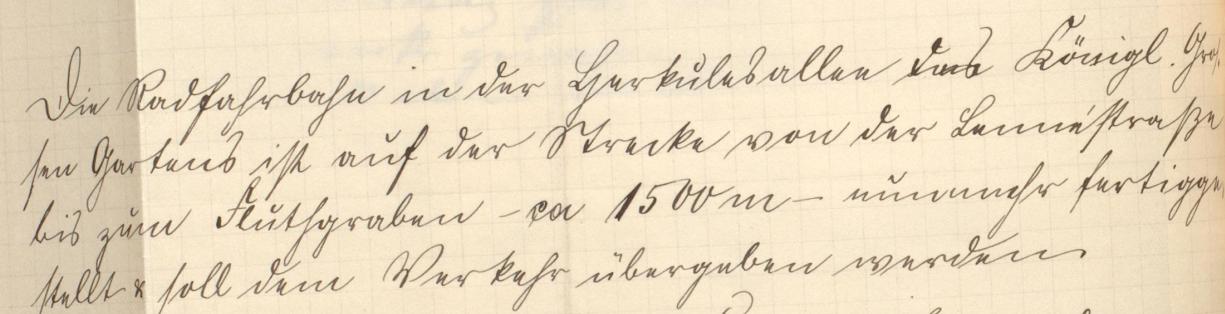 Die Radfahrbahn in der Herkulesallee des Königl. Gro¬
sen Gartens ist auf der Strecke von der Lennéstraße
bis zum Fluthgraben – ca 1500 m – nunmehr fertigge
stellt & soll dem Verkehr übergeben werden